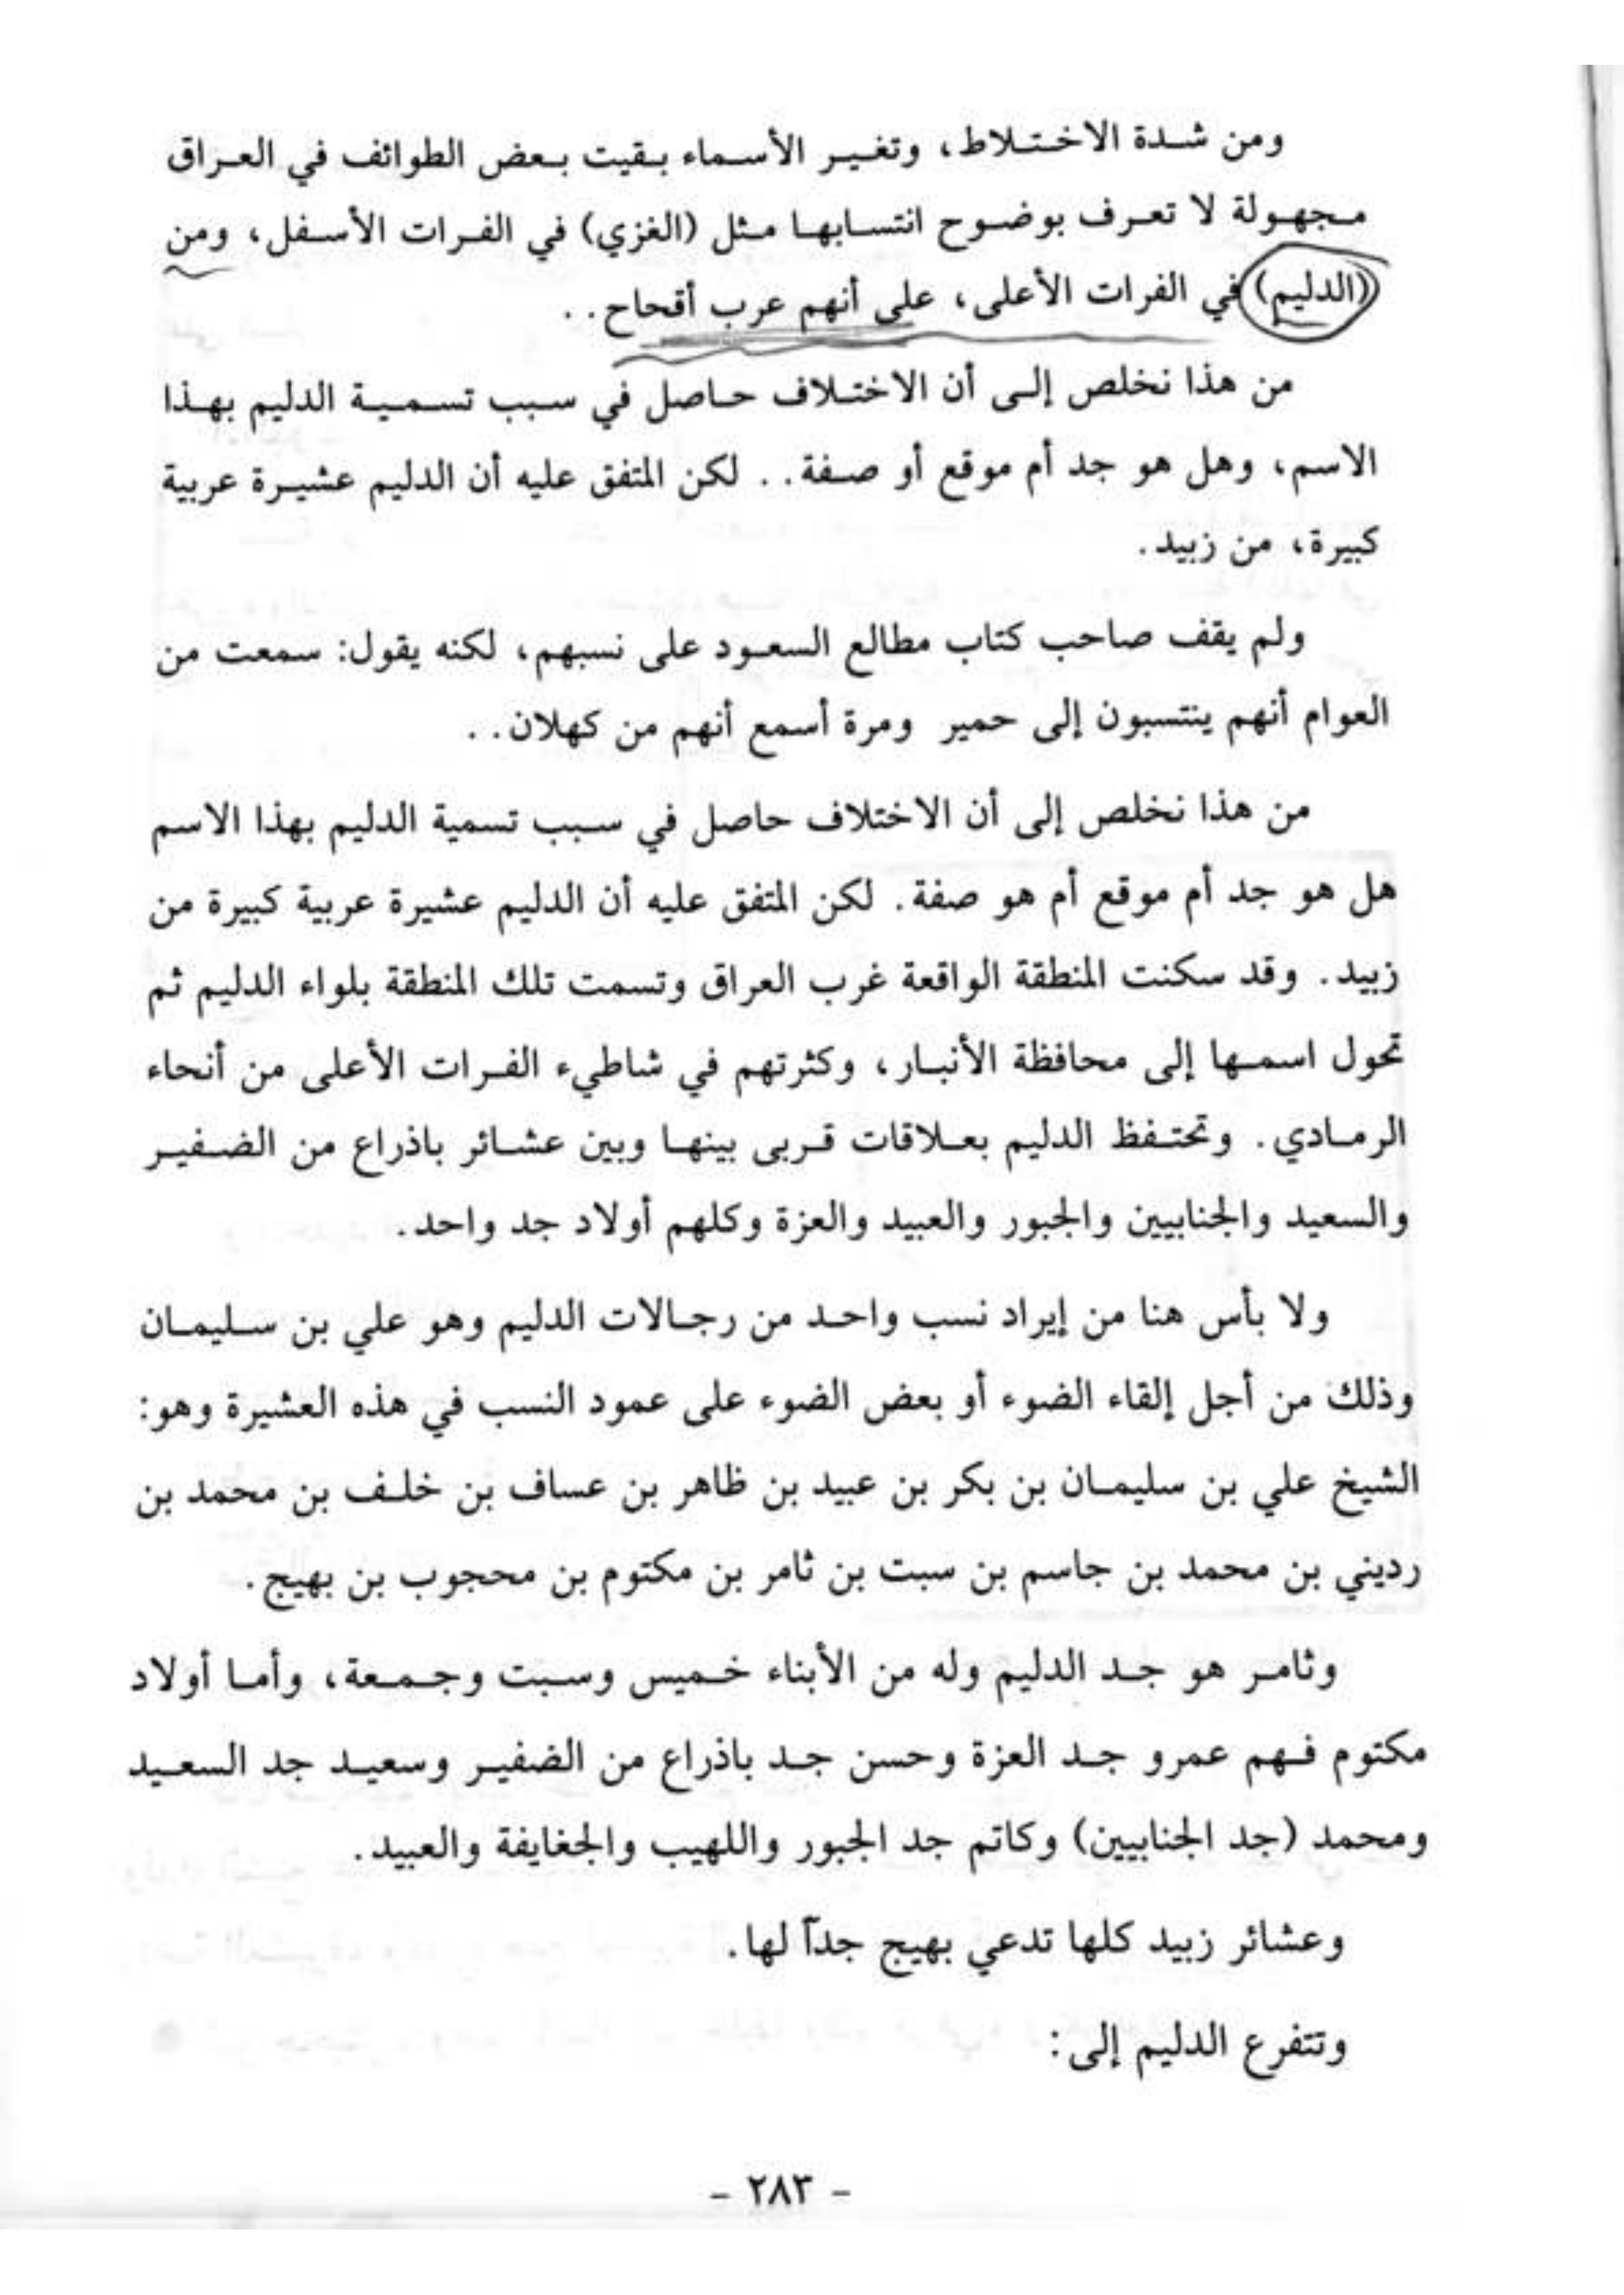 ومن شدة الاختلاط، وتغير الأسماء بقيت بعض الطوائف في العراق
مجهولة لا تعرف بوضوح انتسابها مثل (الغزي) في الفرات الأسفل، ومن
(الدليم) في الفرات الأعلى، على أنهم عرب أقحاح..
من هذا نخلص إلى أن الاختلاف حاصل في سبب تسمية الدليم بهذا
الاسم، وهل هو جد أم موقع أو صفة.. لكن المتفق عليه أن الدليم عشيرة عربية
كبيرة، من زبيد.
ولم يقف صاحب كتاب مطالع السعود على نسبهم، لكنه يقول: سمعت من
العوام أنهم ينتسبون إلى حمير ومرة أسمع أنهم من كهلان..
من هذا نخلص إلى أن الاختلاف حاصل في سبب تسمية الدليم بهذا الاسم
هل هو جد أم موقع أم هو صفة. لكن المتفق عليه أن الدليم عشيرة عربية كبيرة من
زبيد. وقد سكنت المنطقة الواقعة غرب العراق وتسمت تلك المنطقة بلواء الدليم ثم
تحول اسمها إلى محافظة الأنبار، وكثرتهم في شاطيء الفرات الأعلى من أنحاء
الرمادي. وتحتفظ الدليم بعلاقات قربى بينها وبين عشائر باذراع من الضفير
والسعيد والجنابيين والجبور والعبيد والعزة وكلهم أولاد جد واحد.
ولا بأس هنا من إيراد نسب واحد من رجالات الدليم وهو علي بن سليمان
وذلك من أجل إلقاء الضوء أو بعض الضوء على عمود النسب في هذه العشيرة وهو:
الشيخ علي بن سليمان بن بكر بن عبيد بن ظاهر بن عساف بن خلف بن محمد بن
رديني بن محمد بن جاسم بن سبت بن ثامر بن مكتوم بن محجوب بن بهيج.
وثامر هو جد الدليم وله من الأبناء خميس وسبت وجمعة، وأما أولاد
مكتوم فهم عمرو جد العزة وحسن جد باذراع من الضفير وسعيد جد السعيد
ومحمد (جد الجنابيين) وكاتم جد الجبور واللهيب والجغايفة والعبيد.
وعشائر زبيد كلها تدعي بهيج جداً لها.
وتتفرع الدليم إلى:
- ٢٨٣ -